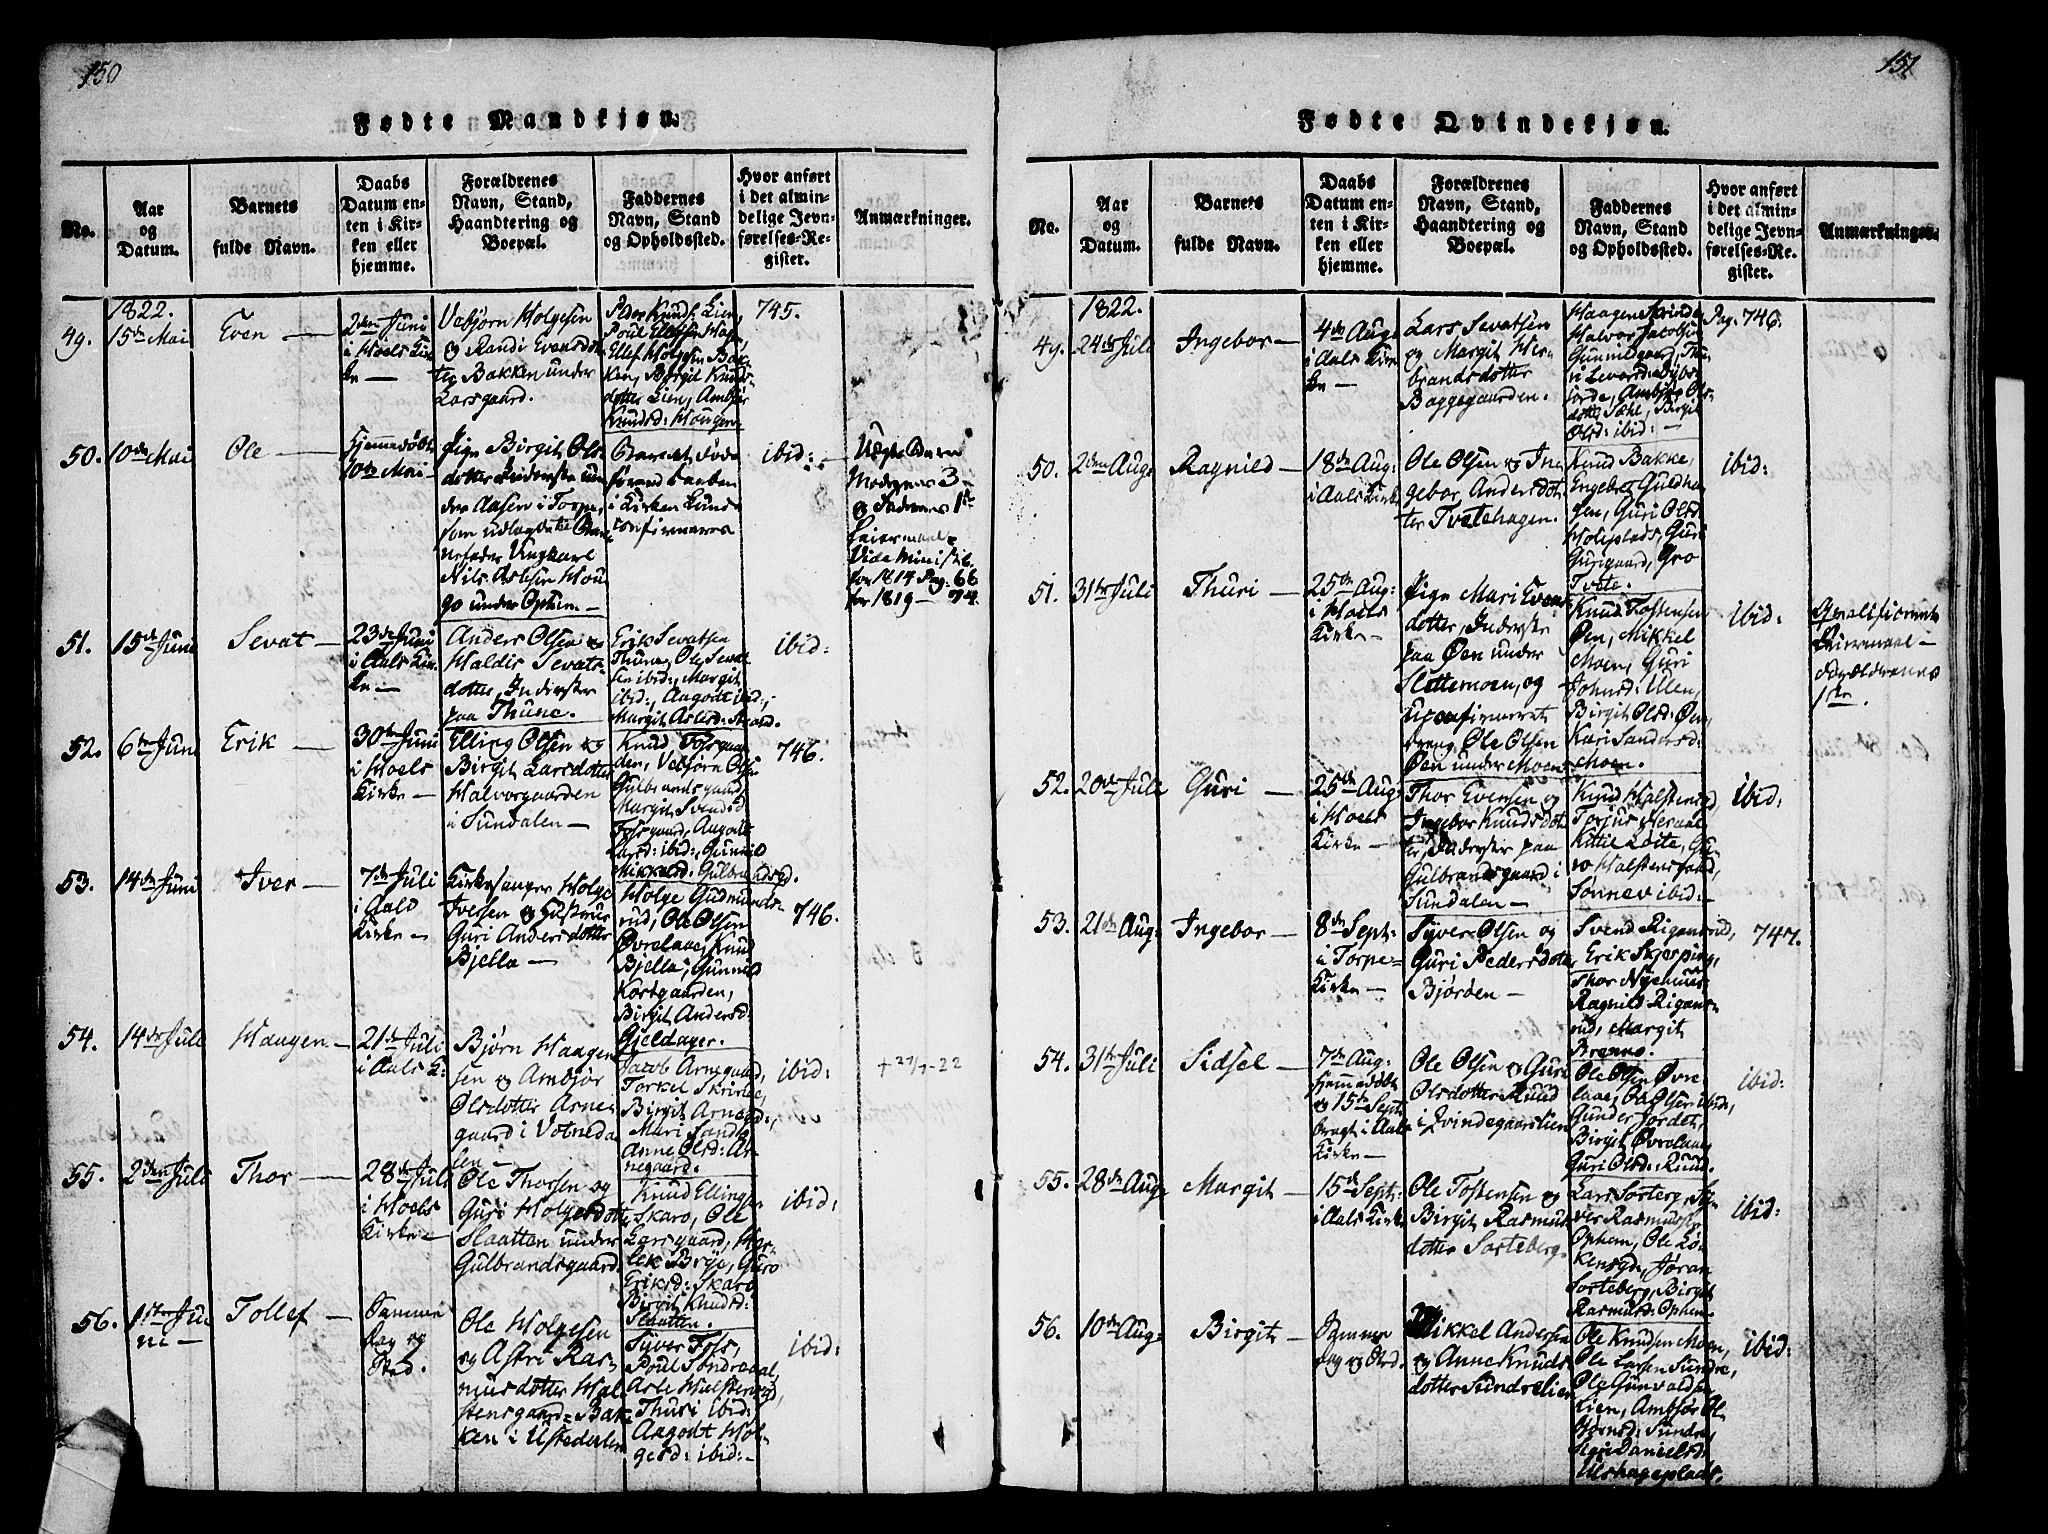 150
Fødte Mandkjøn.
No.
Aar
og
Datum.
Barnets
fulde Navn.
Daabs
Datum en-
ten i Kir-
ken eller
hjemme.
Forældrenes
Navn, Stand,
Haandtering og
Boepæl.
Faddernes
Navn, Stand
og Opholdssted.
Hvor anført
i det almin-
delige Jevn-
førelses-Re-
gister.
Anmærkninger.
1822.
49.
15de Mai
Even —
2den Juni
i Hoels Kir-
ke —
Vebjørn Holgesen
og Randi Evensdot-
ter Bakken under
Larsgaard.
Peder Knuds: Lien,
Poul Ellefsen
Ellef Holgesen Bak-
ken, Birgit Knuds-
dotter Lien, Ambjør
Knudsd: Haugen
745.
50.
10de Mai
Ole —
Hjemmedøbt
10de Mai —
Pige Birgit Ols-
dotter Inderste un-
der Aasen i Torpe,
som udlagde til Bar-
nefader Ungkarl
Nils Aslesen Hou-
go under Ophem. —
Barnet døde
førend Daaben
i Kirken kunde
confirmeres
ibid: —
Uægte Barn
Moderens 3
og Faderens 1ste
Leiermaal
Vide Minist: b.
for 1817 Pag: 66
for 1819 — 74.
51.
15de Juni
Sevat —
23de Juni
i Aals Kir-
ke —
Anders Olsen og
Haldis Sevats-
dotter, Inderster
paa Thune.
Erik Sevatsen
Thune, Ole Sevat-
sen ibid:, Margit
ibid:, Aagodt ibid:,
Margit Aslesd:
ibid:
52.
6te Juni
Erik —
30te Juni
i Hoels
Kirke —
Elling Olsen og
Birgit Larsdotter
Halvorgaarden
i Sundalen —
Knud Fossgaar-
den, Vebjørn Olsen
Gulbrandsgaard,
Margit Svendsd
Fossgaard, Aagodt
Larsd: ibid:, Gunnild
Mikkelsd: Gulbrandsgd.
746.
53.
14de Juni
Iver —
7de Juli
i Aals
Kirke —
Kirkesanger Holge
Iversen og Hustrue
Guri Andersdotter
Bjella —
Holge Gudmunds-
rud, Ole Olsen
Øvrelaae, Knud
Bjella, Gunnild
Kortgaarden,
Birgit Andersd:
Gjeldager.
746.
54.
14de Juli
Haagen —
21de Juli
i Aals K:
Bjørn Haagen
sen og Ambjør
Olsdotter Arne
gaard i Votneda
len —
Jacob Arnegaard,
Torkel Skrinde,
Birgit Arnegd:,
Mari Sando
Anne Olsd: Ar-
negaard.
ibid:
+ 27/7-22
55.
2den Juli
Thor —
28de Juli
i Hoels
Kirke —
Ole Thorsen og
Guri Holgesdotter
Slaatten under
Gulbrandsgaard.
Knud Elling-
Skaro, Ole
Larsgaard, Hos-
lek Brye, Guro
Eriksd: Skaro
Birgit Knudsd:
Slaatten.
ibid:
56.
1ste Ju-
ni —
Tollef —
Samme
Dag og
Sted.
Ole Holgesen
og Astri Ras-
musdotter Hal-
stensgaard-Bak-
ken i Ustedalen
Syver Foss,
Poul Sondreaal,
Asle Halstensgd,
Thuri ibid:
Aagodt Hol-
gesd: ibid: —
ibid:
151
Fødte Qvindekjøn.
No.
Aar
og
Datum.
Barnets
fulde Navn.
Daabs
Datum en-
ten i Kir-
ken eller
hjemme.
Forældrenes
Navn, Stand,
Haandtering og
Boepæl.
Faddernes
Navn, Stand
og Opholdssted.
Hvor anført
i det almin-
delige Jevn-
førelses-Re-
gister.
Anmærkninger.
1822.
49.
24de Juli
Ingebor —
4de Aug:
i Aals Kir-
ke —
Lars Sevatsen
og Margit Her-
brandsdotter
Baggegaarden.
Haagen Skrinde
Halvor Jacobsen
Gunnildgaard, Thu-
ri Leversd:
Ambjør Ols-
dotter Sæhl, Birgit
Olsd: ibid: —
Pag: 746.
50.
2den Aug:
Ragnild —
18de Aug:
i Aals Kirke
Ole Olsen og In-
gebor Andersdot-
ter Tvetehagen.
Knud Bakke,
Engebret Guldha-
gen, Guri Olsd:
Holeplads, Guri
Gurigaard, Gro
Tvete.
ibid:
51.
31te Juli
Thuri —
25de Aug:
i Hoels
Kirke —
Pige Mari Evens-
dotter, Inderste
paa Øen under
Slettemoen, og
uconfirmeret
Dreng Ole Olsen
Øen under Moen.
Knud Tostensen
Øen, Mikkel
Moen, Guri
Johnsd: Ulen,
Birgit Olsd: Øen,
Kari Sandersd:
Moen.
ibid:
Leiermaal —
Forældrenes
1ste.
52.
20de Juli
Guri —
25de Aug:
i Hoels
Kirke —
Thor Evensen og
Ingebor Knudsdot-
ter, Inderster paa
Gulbrandsgaard i
Sundalen —
Knud Halstensgd,
Torjus Nesaae
Kittil Løtte, Gu-
ro Halstensgaard,
Sønnev ibid: —
ibid:
53.
21de Aug:
Ingebor —
8de Sept:
i Torpe-
Kirke —
Syver Olsen og
Guri Pedersdotter
Bjørøen —
Svend Rigansrud,
Erik Skjerping,
Thor Nyehuus
Ragnild Rigans-
rud, Margit
Brenno.
747.
54.
31te Juli
Sidsel —
7de Aug:
hjemmedøbt
og 15de Sept:
bragt i Aals
Kirke —
Ole Olsen og Guri
Olsdotter Ruud
i Qvindegaardslien
Ole Olsen Øvre
laae, Ole Olsen ibid:,
Gunder Jordet,
Birgit Øvrelaae
Guri Olsd: Ruud.
ibid:
55.
28de Aug:
Margit —
15de Sept:
i Aals Kirke
Ole Tostensen og
Birgit Rasmus-
dotter Sorteberg.
Lars Sorteberg, Sy-
ver Rasmussen
Ophem, Ole Lø-
kensgd, Jøran
Sorteberg, Birgit
Rasmusd: Ophem.
ibid:
56.
10de Aug:
Birgit —
Samme
Dag og Sted.
Mikkel Andersen
og Anne Knuds-
dotter Sundrelien
Ole Knudsen Moen,
Ole Larsen Sundre,
Ole Gunvaldsen
Lien, Ambjør
Bjørnsd: Sundre
Danielsd:
Ulshageplads.
ibid: